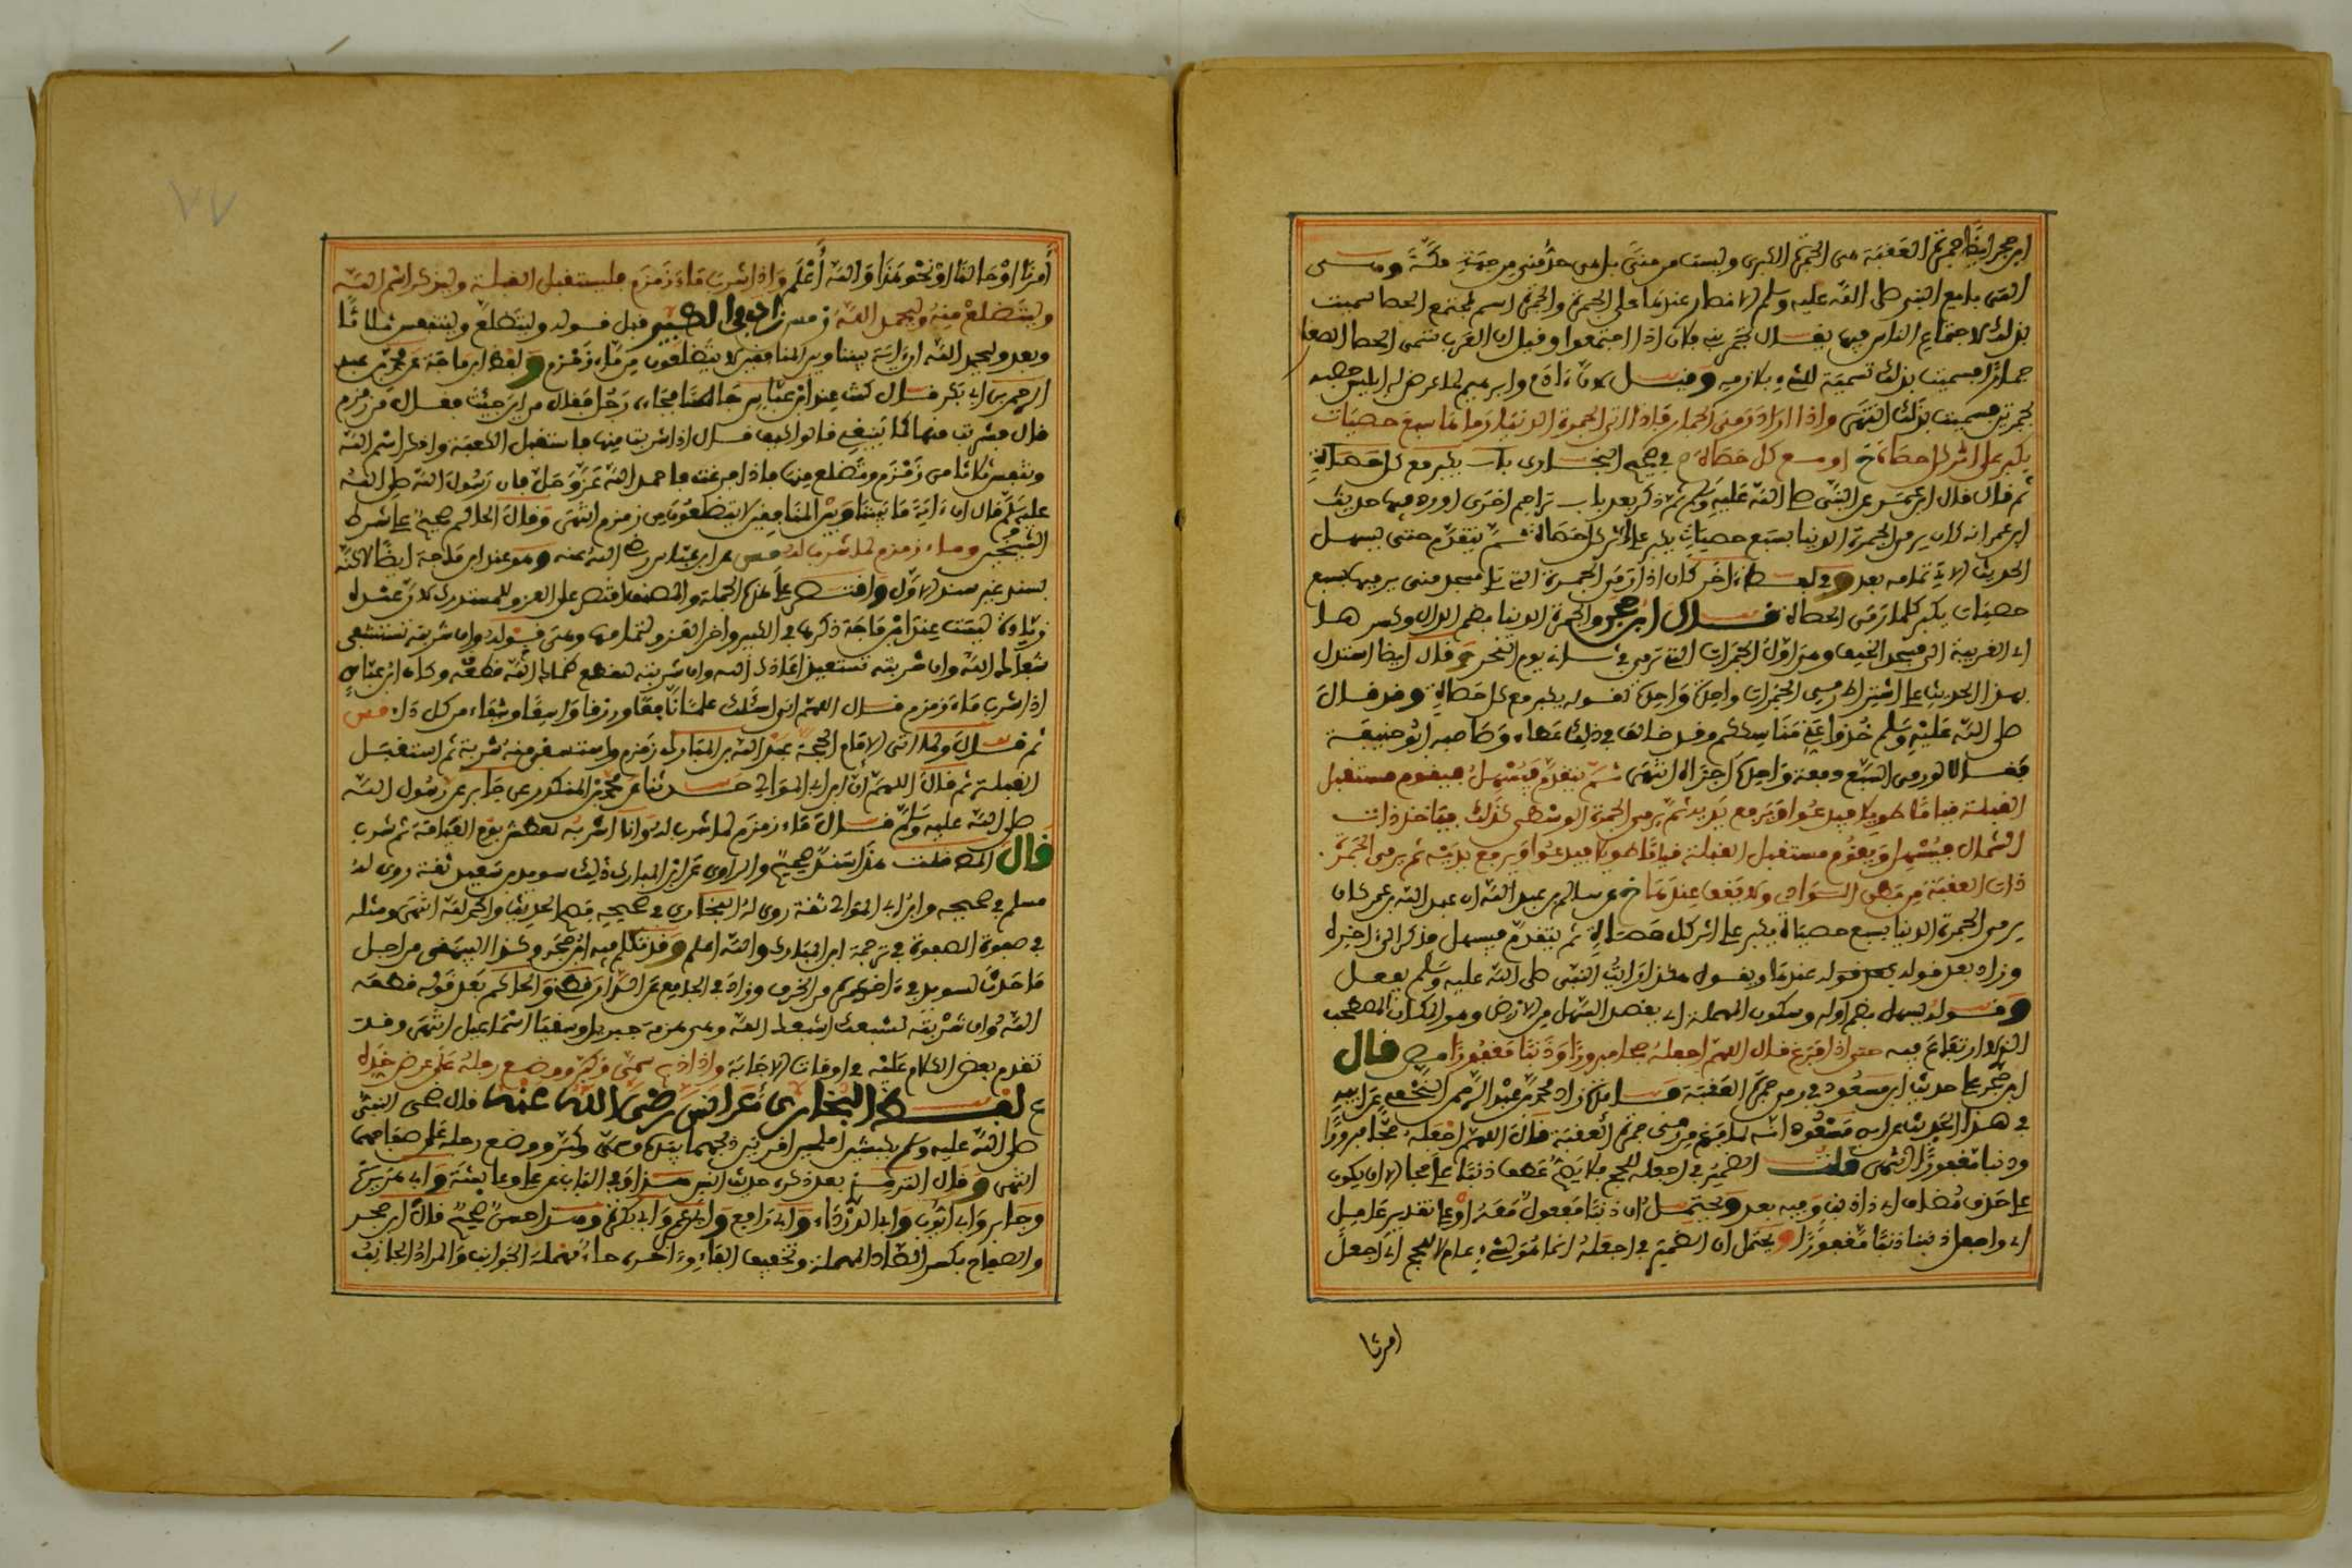 ابن حجر أيضا جمرة العقبة هي الجمرة الكبرى وليست من منى بل هي حد منى من جهة مكة وهي
التي بايع النبي صلى الله عليه وسلم الانصار عندها على الهجرة والجمرة اسم لمجتمع الحصا سميت
بذلك لاجتماع الناس فيها يقال تجمر بنو فلان اذا اجتمعوا وقيل ان العرب تسمي الحصا الصغار
جمارا فسميت بذلك تسمية للشيء بلازمه وقيل لان ءادم وابرهيم لما عرض له ابليس فحصبه
بجمرتين فسميت بذلك انتهى واذا اراد رمي الجمار فاذا اتى الجمرة الدنيا رماها بسبع حصيات
يكبر على اثر كل حصاة خ او مع كل حصاة م في صحيح البخاري باب يكبر مع كل حصاة
ثم قال قاله ابن عمر عن النبي صلى الله عليه وسلم ثم ذكر بعد باب تراجم اخرى اورد فيها حديث
ابن عمر انه كان يرمي الجمرة الدنيا بسبع حصيات يكبر على اثر كل حصاة ثم يتقدم حتى يسهل
الحديث الاتي تمامه بعد وفي لفظ ءاخر كان اذا رمى الجمرة التي تلي مسجد منى يرميها بسبع
حصيات يكبر كلما رمى بحصاة قال ابن حجر والجمرة الدنيا بضم الدال وكسرها
اي القريبة الى مسجد الخيف وهي اول الجمرات التي ترمى ثاني يوم النحر وقال ايضا استدل
بهذا الحديث على اشتراط رمي الجمرات واحدة واحدة لقوله يكبر مع كل حصاة وقد قال
صلى الله عليه وسلم خذوا عني مناسككم وقد خالف في ذلك عطاء وصاحبه ابو حنيفة
فقالا لو رمى السبع دفعة واحدة اجزأه انتهى ثم يتقدم فيسهل فيقوم مستقبل
القبلة قياما طويلا فيدعوا ويرفع يديه ثم يرمي الجمرة الوسطى كذلك فياخذ ذات
الشمال فيسهل ويقوم مستقبل القبلة قياما طويلا فيدعوا ويرفع يديه ثم يرمي الجمرة
ذات العقبة من بطن الوادي ولا يقف عندها خ عن سالم بن عبد الله ان عبد الله بن عمر كان
يرمي الجمرة الدنيا بسبع حصيات يكبر على اثر كل حصاة ثم يتقدم فيسهل فذكر الى اخره
وزاد بعد قوله عندها ويقول هكذا رايت النبي صلى الله عليه وسلم يفعل
وقوله يسهل بضم اوله وسكون المهملة اي يقصد السهل من الارض وهو المكان المصطحب
الذي لا ارتفاع فيه حتى اذا فرغ قال اللهم اجعله حجا مبرورا وذنبا مغفورا مص قال
ابن حجر على حديث ابن مسعود في رمي جمرة العقبة زاد محمد بن عبد الرحمن النخعي عن ابيه
في هذا الحديث عن ابن مسعود انه لما فرغ من رمي جمرة العقبة قال اللهم اجعله حجا مبرورا
وذنبا مغفورا انتهى قلت الضمير في اجعله للحج فلا يصح عطف ذنبا على حجا الا ان يكون
على حذف مضاف اي ذا ذنب وفيه بعد ويحتمل ان ذنبا مفعول معه او على تقدير عامل
اي واجعل ذنبنا ذنبا مغفورا ويحتمل ان الضمير في اجعله انما هو لشيء عام لا للحج اي اجعل
امرنا
أمرنا او حالنا او نحو هذا والله أعلم واذا شرب ماء زمزم فليستقبل القبلة وليذكر اسم الله
وليتضلع منه وليحمد الله ق مس زاد في الكبير قبل قوله وليتضلع وليتنفس ثلاثا
وبعد وليحمد الله ان ءاية بيننا وبين المنافقين لا يتضلعون من ماء زمزم ولفظ ابن ماجة عن محمد بن عبد
الرحمن بن ابي بكر قال كنت عند ابن عباس جالسا فجاءه رجل فقال من اين جئت فقال من زمزم
قال فشربت منها كما ينبغي قال وكيف قال اذا شربت منها فاستقبل الكعبة واذكر اسم الله
وتنفس ثلاثا من زمزم وتضلع منها فاذا فرغت فاحمد الله عز وجل فان رسول الله صلى الله
عليه وسلم قال ان ءاية ما بيننا وبين المنافقين لا يتضلعون من زمزم انتهى وقال الحاكم صحيح على شرط
الشيخين وماء زمزم لما شرب له مس عن ابن عباس رضي الله عنه وهو عند ابن ماجة ايضا لاكنه
بسند غير سند الاول واقتصر على هذه الجملة والمصنف اقتصر على العزو للمستدرك لان عنده
زيادة ليست عند ابن ماجة ذكرها في الكبير واخر العزو لتمامها وهي قوله وان شربته تستشفي
شفاك الله وان شربته مستعيذا اعاذك الله وان شربته لتقطع ظمأك الله قطعه وكان ابن عباس
اذا شرب ماء زمزم قال اللهم اني اسئلك علما نافعا ورزقا واسعا وشفاء من كل داء مس
ثم قال ولما اتى الامام الحجة عبد الله بن المبارك زمزم واستسقى منه شربة ثم استقبل
القبلة ثم قال اللهم ان ابن ابي الموالي حدثنا عن محمد بن المنكدر عن جابر عن رسول الله
صلى الله عليه وسلم قال ماء زمزم لما شرب له وانا اشربه لعطش يوم القيامة ثم شرب
قال المص قلت هذا سند صحيح والراوي عن ابن المبارك ذلك سويد بن سعيد ثقة روى له
مسلم في صحيحه وابن ابي الموالي ثقة روى له البخاري في صحيحه فصح الحديث والحمد لله انتهى ومثله
في صفوة الصفوة في ترجمة ابن المبارك والله اعلم وقد تكلم فيه ابن حجر وكذا البيهقي من اجل
ما حدث لسويد في ءاخر عمره من الخرف وزاد في الجامع عن الدارقطني والحاكم بعد قوله قطعه
الله وان شربته لشبعك اشبعك الله وهي هزمة جبريل وسقيا اسماعيل انتهى وقد
تقدم بعض الكلام عليه في اوقات الاجابة واذا ذبح سمى وكبر ووضع رجله على عرض خده
ع لفظ البخاري عن انس رضي الله عنه قال ضحى النبي
صلى الله عليه وسلم بكبشين املحين اقرنين ذبحهما بيده وسمى وكبر ووضع رجله على صفاحهما
انتهى وقال الترمذي بعد ذكره حديث انس هذا وفي الباب عن علي وعائشة وابي هريرة
وجابر وابي ايوب وابي الدرداء وابي رافع وابن عمر وابي بكرة وهذا حسن صحيح قال ابن حجر
والصفاح بكسر الصاد المهملة وتخفيف الفاء وءاخره حاء مهملة الجوانب والمراد الجانب